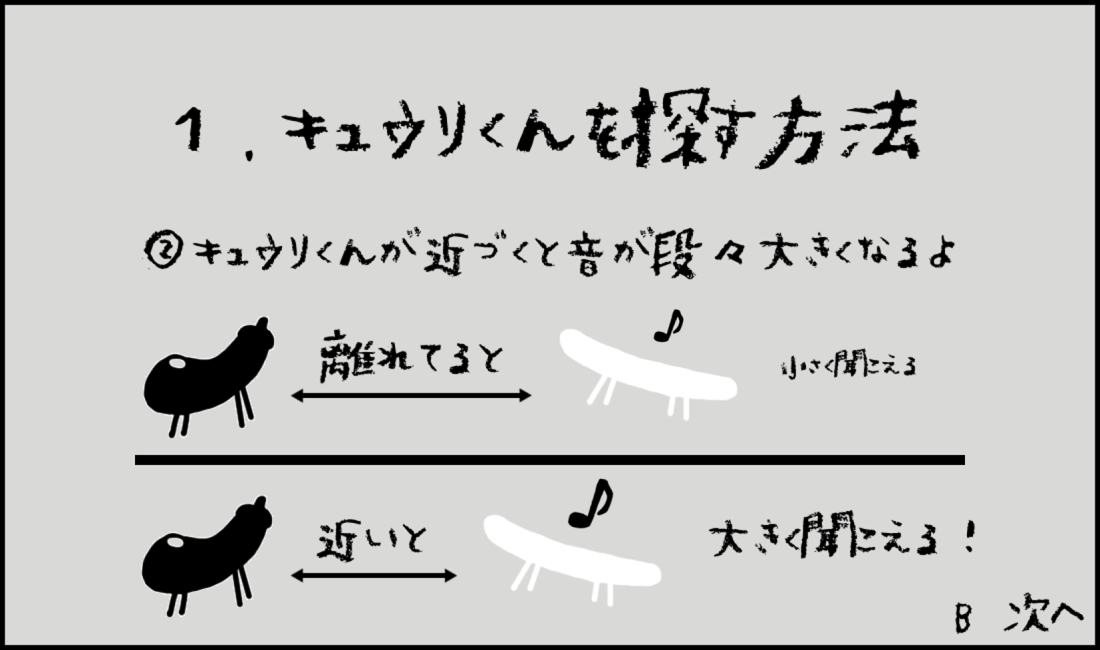 1. キュウリくんを探す方法
②キュウリくんが近づくと音が段々大きくなるよ
離れてると
小さく聞こえる
近いと
大きく聞こえる!
B 次へ